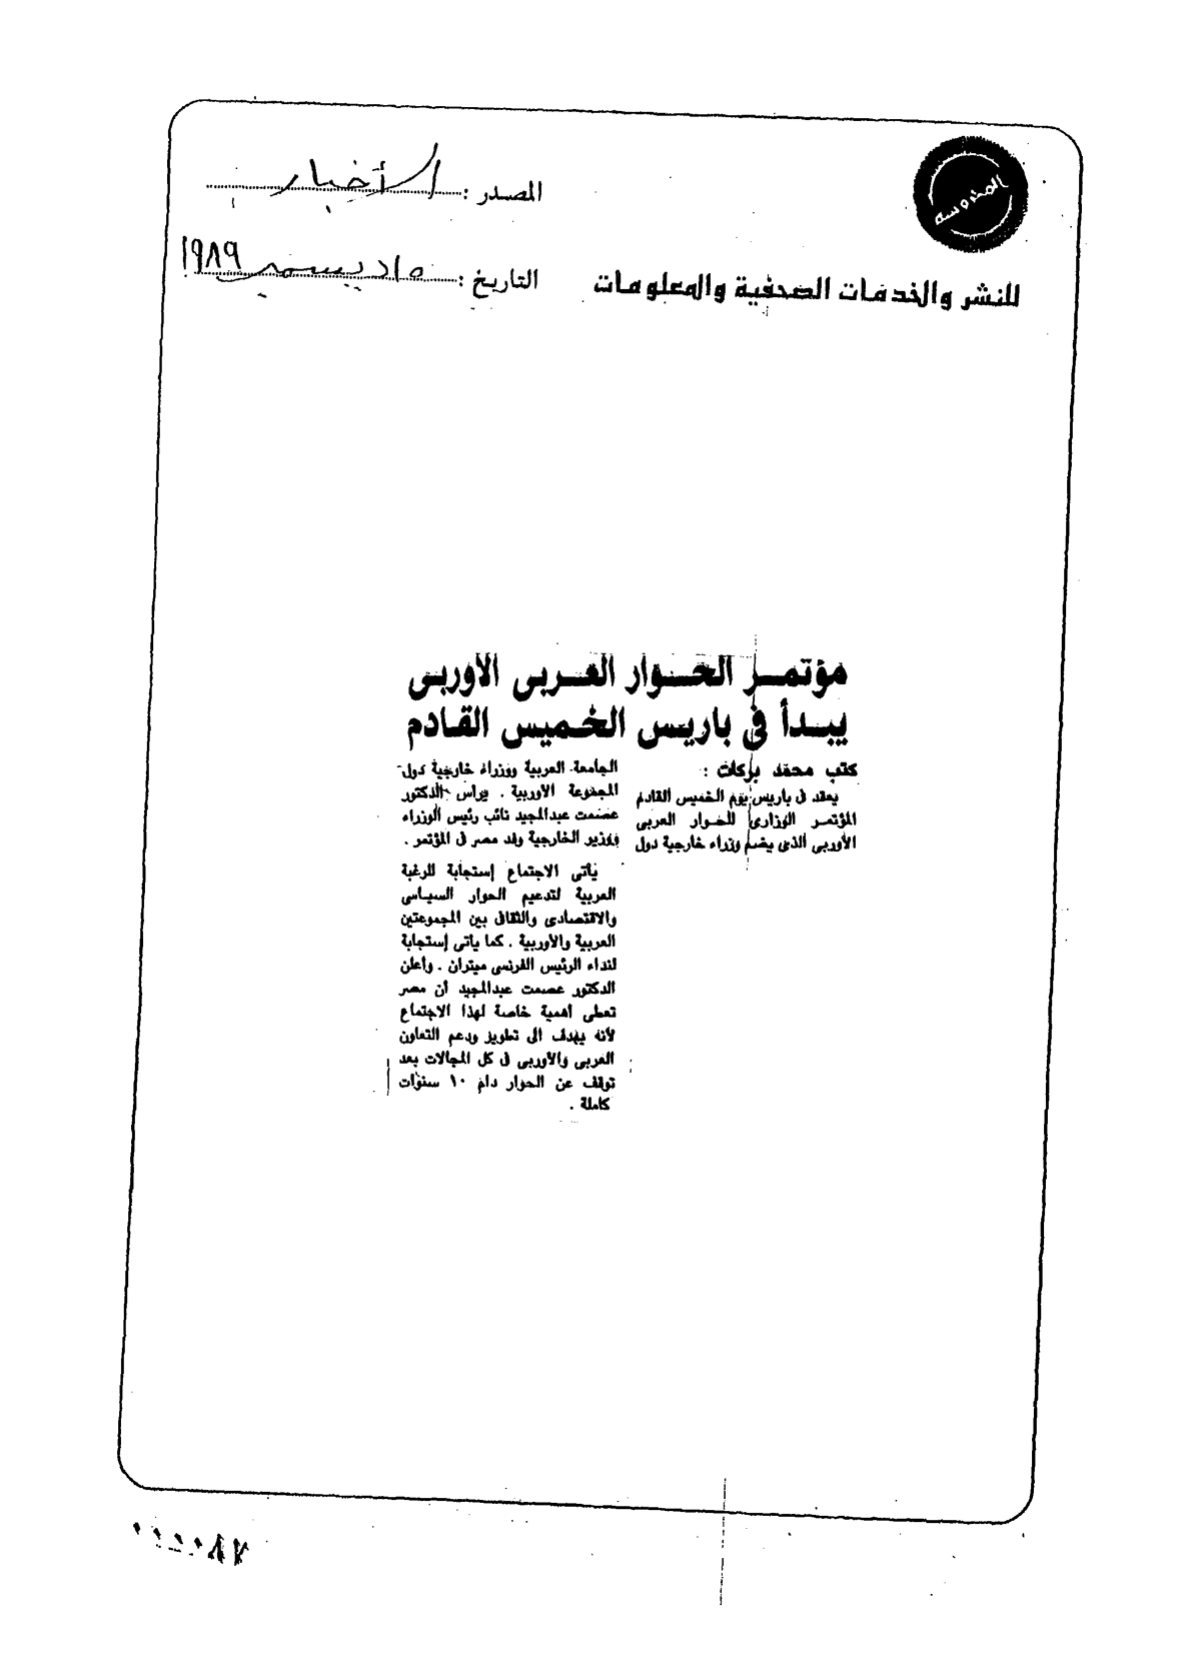 المحروسه
للنشر والخدمات الصحفية والمعلومات
المصدر : الأخبار
التاريخ : ١٥ ديسمبر ١٩٨٩
مؤتمر الحوار العربى الأوربى
يبدأ فى باريس الخميس القادم
كتب محمد بركات :
يعقد فى باريس يوم الخميس القادم
المؤتمر الوزارى للحوار العربى
الأوربى الذى يضم وزراء خارجية دول
الجامعة العربية ووزراء خارجية دول
المجموعة الأوربية . يرأس الدكتور
عصمت عبدالمجيد نائب رئيس الوزراء
ووزير الخارجية وفد مصر فى المؤتمر .
يأتى الاجتماع إستجابة للرغبة
العربية لتدعيم الحوار السياسى
والاقتصادى والثقافى بين المجموعتين
العربية والأوربية . كما يأتى إستجابة
لنداء الرئيس الفرنسى ميتران . وأعلن
الدكتور عصمت عبدالمجيد أن مصر
تعطى أهمية خاصة لهذا الاجتماع
لأنه يهدف الى تطوير ودعم التعاون
العربى والأوربى فى كل المجالات بعد
توقف عن الحوار دام ١٠ سنوات
كاملة .